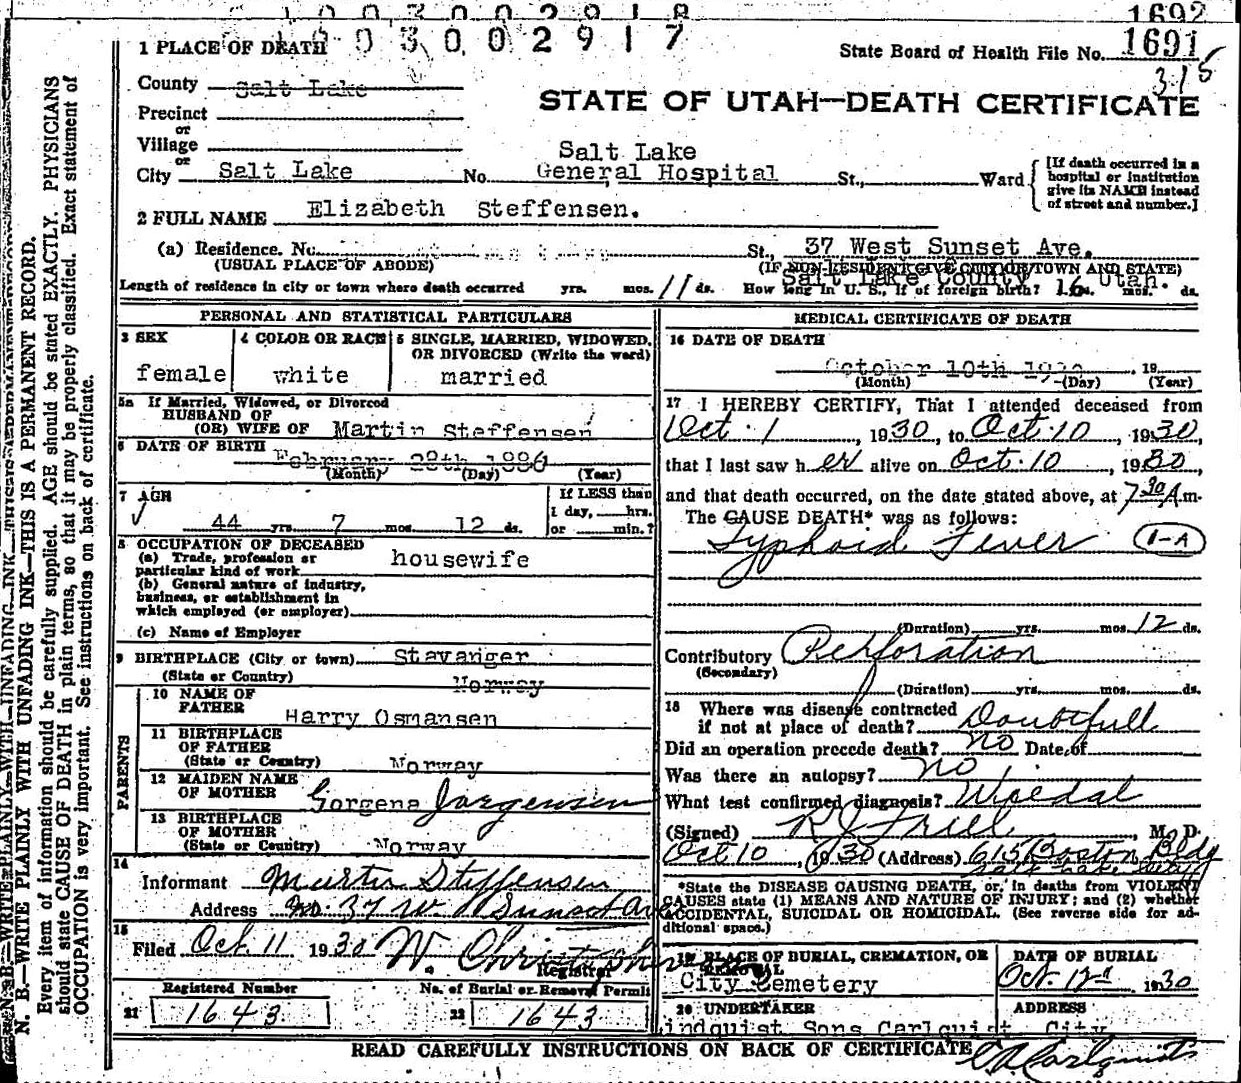 1692
1003002917
1 PLACE OF DEATH
State Board of Health File No. 1691
315
County Salt Lake
STATE OF UTAH—DEATH CERTIFICATE
Precinct
or
Village
or
City Salt Lake No. Salt Lake General Hospital St., Ward
[If death occurred in a hospital or institution give its NAME instead of street and number.]
2 FULL NAME Elizabeth Steffensen.
(a) Residence. No. St., 37 West Sunset Ave.
(USUAL PLACE OF ABODE) (IF NON-RESIDENT GIVE CITY OR TOWN AND STATE)
Salt Lake County Utah.
Length of residence in city or town where death occurred yrs. mos. 11 ds. How long in U. S., if of foreign birth? 16 yrs. mos. ds.
PERSONAL AND STATISTICAL PARTICULARS
3 SEX
female
4 COLOR OR RACE
white
5 SINGLE, MARRIED, WIDOWED, OR DIVORCED (Write the word)
married
5a If Married, Widowed, or Divorced
HUSBAND OF
(OR) WIFE OF Martin Steffensen
6 DATE OF BIRTH February 28th 1886
(Month) (Day) (Year)
7 AGE
44 yrs. 7 mos. 12 ds.
If LESS than
1 day, hrs.
or min.?
8 OCCUPATION OF DECEASED
(a) Trade, profession or particular kind of work housewife
(b) General nature of industry, business, or establishment in which employed (or employer)
(c) Name of Employer
9 BIRTHPLACE (City or town) Stavanger
(State or Country) Norway
PARENTS
10 NAME OF FATHER Harry Osmansen
11 BIRTHPLACE OF FATHER
(State or Country) Norway
12 MAIDEN NAME OF MOTHER Gorgena Jorgensen
13 BIRTHPLACE OF MOTHER
(State or Country) Norway
14
Informant Martin Steffensen
Address No. 37 W. Sunset Ave
15
Filed Oct. 11 1930
Registrar
Registered Number
21 1643
No. of Burial or Removal Permit
22 1643
MEDICAL CERTIFICATE OF DEATH
16 DATE OF DEATH
October 10th 1930, 19
(Month) (Day) (Year)
17 I HEREBY CERTIFY, That I attended deceased from
Oct. 1, 1930, to Oct. 10, 1930,
that I last saw her alive on Oct. 10, 1930,
and that death occurred, on the date stated above, at 7:30 A.m.
The CAUSE DEATH* was as follows:
Typhoid Fever 1-A
(Duration) yrs. mos. 12 ds.
Contributory Perforation
(Secondary)
(Duration) yrs. mos. ds.
18 Where was disease contracted
if not at place of death? Doubtfull
Did an operation precede death? no Date of
Was there an autopsy? no
What test confirmed diagnosis? Widal
(Signed) M. D.
Oct 10, 1930 (Address) 615 Boston Bldg
Salt Lake City
*State the DISEASE CAUSING DEATH, or, in deaths from VIOLENT
CAUSES state (1) MEANS AND NATURE OF INJURY; and (2) whether
ACCIDENTAL, SUICIDAL OR HOMICIDAL. (See reverse side for ad-
ditional space.)
19 PLACE OF BURIAL, CREMATION, OR REMOVAL
City Cemetery
DATE OF BURIAL
Oct. 12" 1930
20 UNDERTAKER
indquist Sons Carlquist
ADDRESS
City
READ CAREFULLY INSTRUCTIONS ON BACK OF CERTIFICATE
N. B.—WRITE PLAINLY WITH UNFADING INK—THIS IS A PERMANENT RECORD.
Every item of information should be carefully supplied. AGE should be stated EXACTLY. PHYSICIANS
should state CAUSE OF DEATH in plain terms, so that it may be properly classified. Exact statement of
OCCUPATION is very important. See instructions on back of certificate.